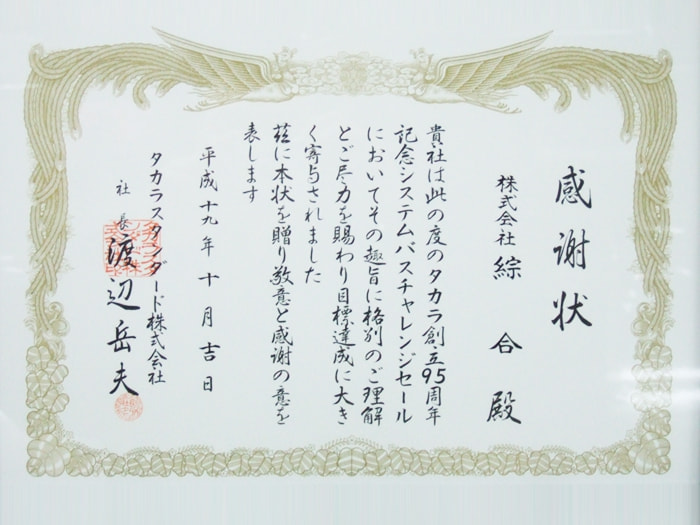 感謝状
株式会社 綜合殿
貴社は此の度のタカラ創立95周年
記念システムバスチャレンジセール
においてその趣旨に格別のご理解
とご尽力を賜わり目標達成に大き
く寄与されました
茲に本状を贈り敬意と感謝の意を
表します
平成十九年十月吉日
タカラスタンダード株式会社
社長 渡辺岳夫